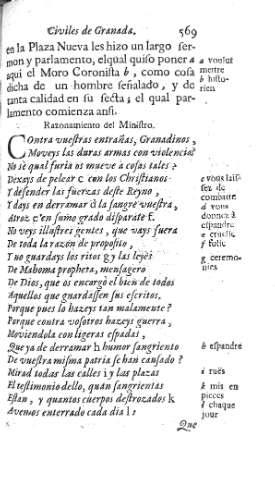 Civiles de Granada. 569
en la Plaza Nueva les hizo un largo ser-
mon y parlamento, elqual quiso poner a
aqui el Moro Coronista b, como cosa
dicha de un hombre señalado, y de
tanta calidad en su secta; el qual par-
lamento comienza ansi.
a voulut
mettre
b histo-
rien
Razonamiento del Ministro.
COntra vuestras entrañas, Granadinos,
Moveys las duras armas con violencia?
No sè qual furia os mueve à cosas tales?
Dexays de pelear c con los Christianos
Y defender las fuerzas deste Reyno,
Y days en derramar d la sangre vuestra,
Atroz e en sumo grado disparate f.
No veys illustres gentes, que vays fuera
De toda la razon de proposito,
Y no guardays los ritos g y las leyes
De Mahoma propheta, mensagero
De Dios, que os encargó el bien de todos
Aquellos que guardassen sus escritos.
Porque pues lo hazeys tan malamente?
Porque contra vosotros hazeys guerra,
Moviendola con ligeras espadas,
Que ya de derramar h humor sangriento
De vuestra misma patria se han cansado?
Mirad todas las calles i y las plazas
El testimonio dello, quán sangrientas
Estan, y quantos cuerpos destrozados k
Avemos enterrado cada dia l:
c vous laiss-
sez de
combatre
d vous
donnez à
espandre
e cruelle
f folie
g ceremo-
nies
h espandre
i ruës
k mis en
pieces
l chaque
jour
Que